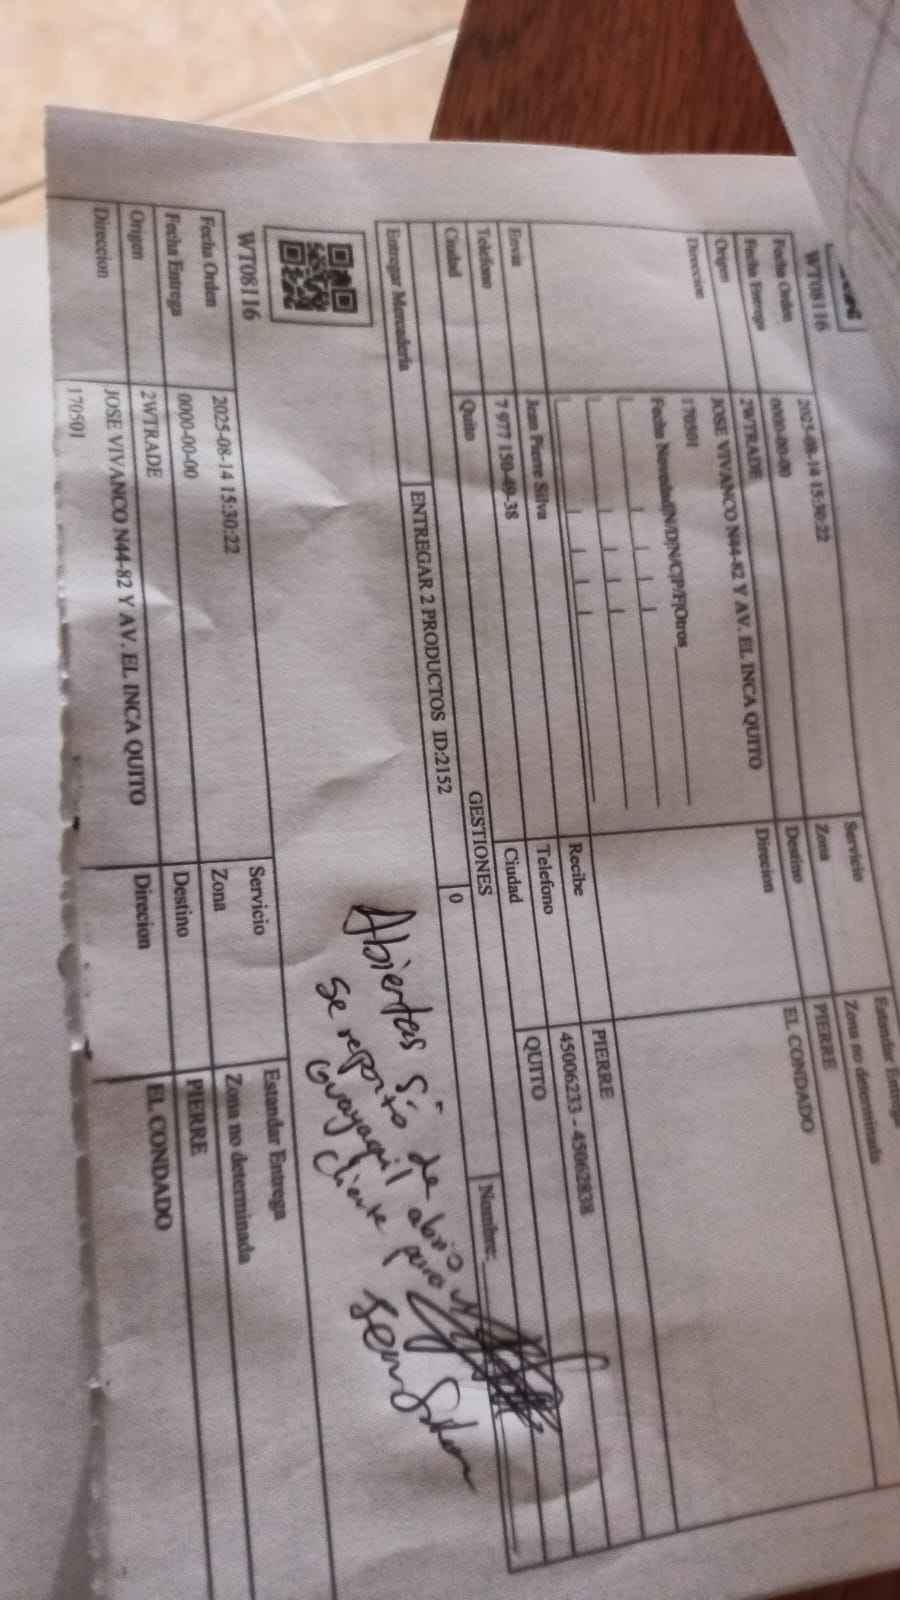 WT08116
Fecha Orden 2025-08-14 15:30:22 Servicio Estandar Entrega
Fecha Entrega 0000-00-00 Zona Zona no determinada
Origen 2WTRADE Destino PIERRE
Direccion JOSE VIVANCO N44-82 Y AV. EL INCA QUITO Direcion EL CONDADO
170501
Fecha Novedad|N/D|N/C|P/F|Otros
Envia Jean Pierre Silva Recibe PIERRE
Telefono 7 977 150-49-38 Telefono 45006233 - 45062838
Ciudad Quito Ciudad QUITO
GESTIONES
Entregar Mercaderia ENTREGAR 2 PRODUCTOS ID:2152 0 Nombre:
Abiertas Si de abrio
Se reporto para
Guayaquil
Cliente
WT08116
Fecha Orden 2025-08-14 15:30:22 Servicio Estandar Entrega
Fecha Entrega 0000-00-00 Zona Zona no determinada
Origen 2WTRADE Destino PIERRE
Direccion JOSE VIVANCO N44-82 Y AV. EL INCA QUITO Direcion EL CONDADO
170501